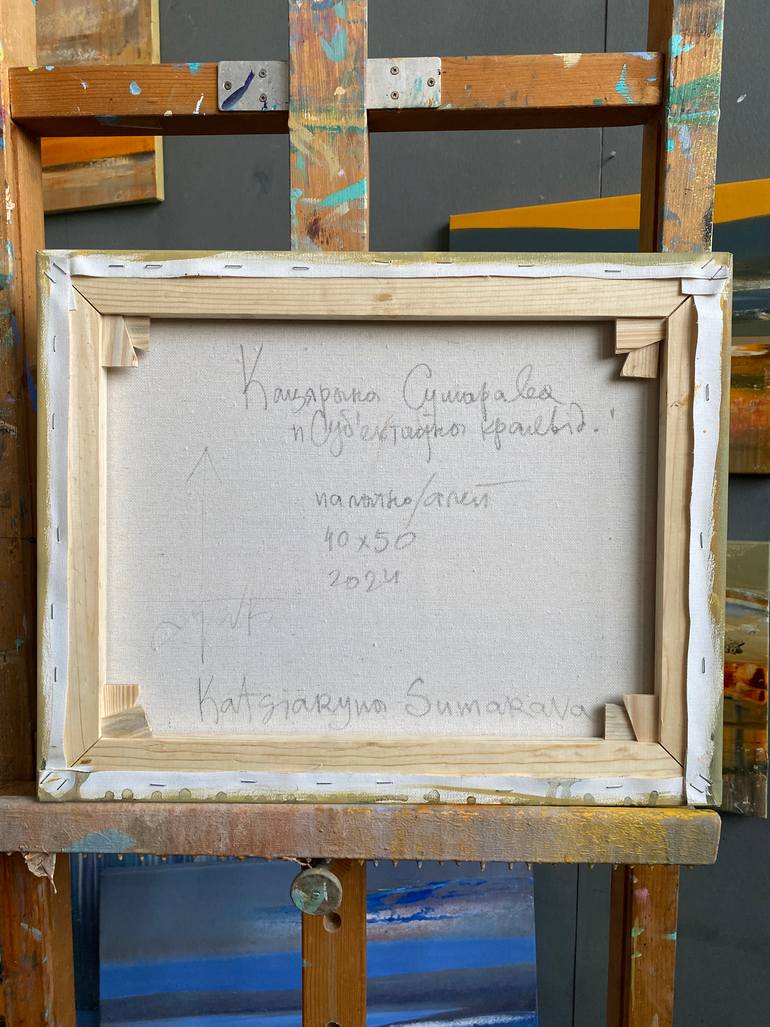 Кацярына Сумарава
"Суб'ектаўны краявід."
палатно/алей
40x50
2024
Katsiaryna Sumarava